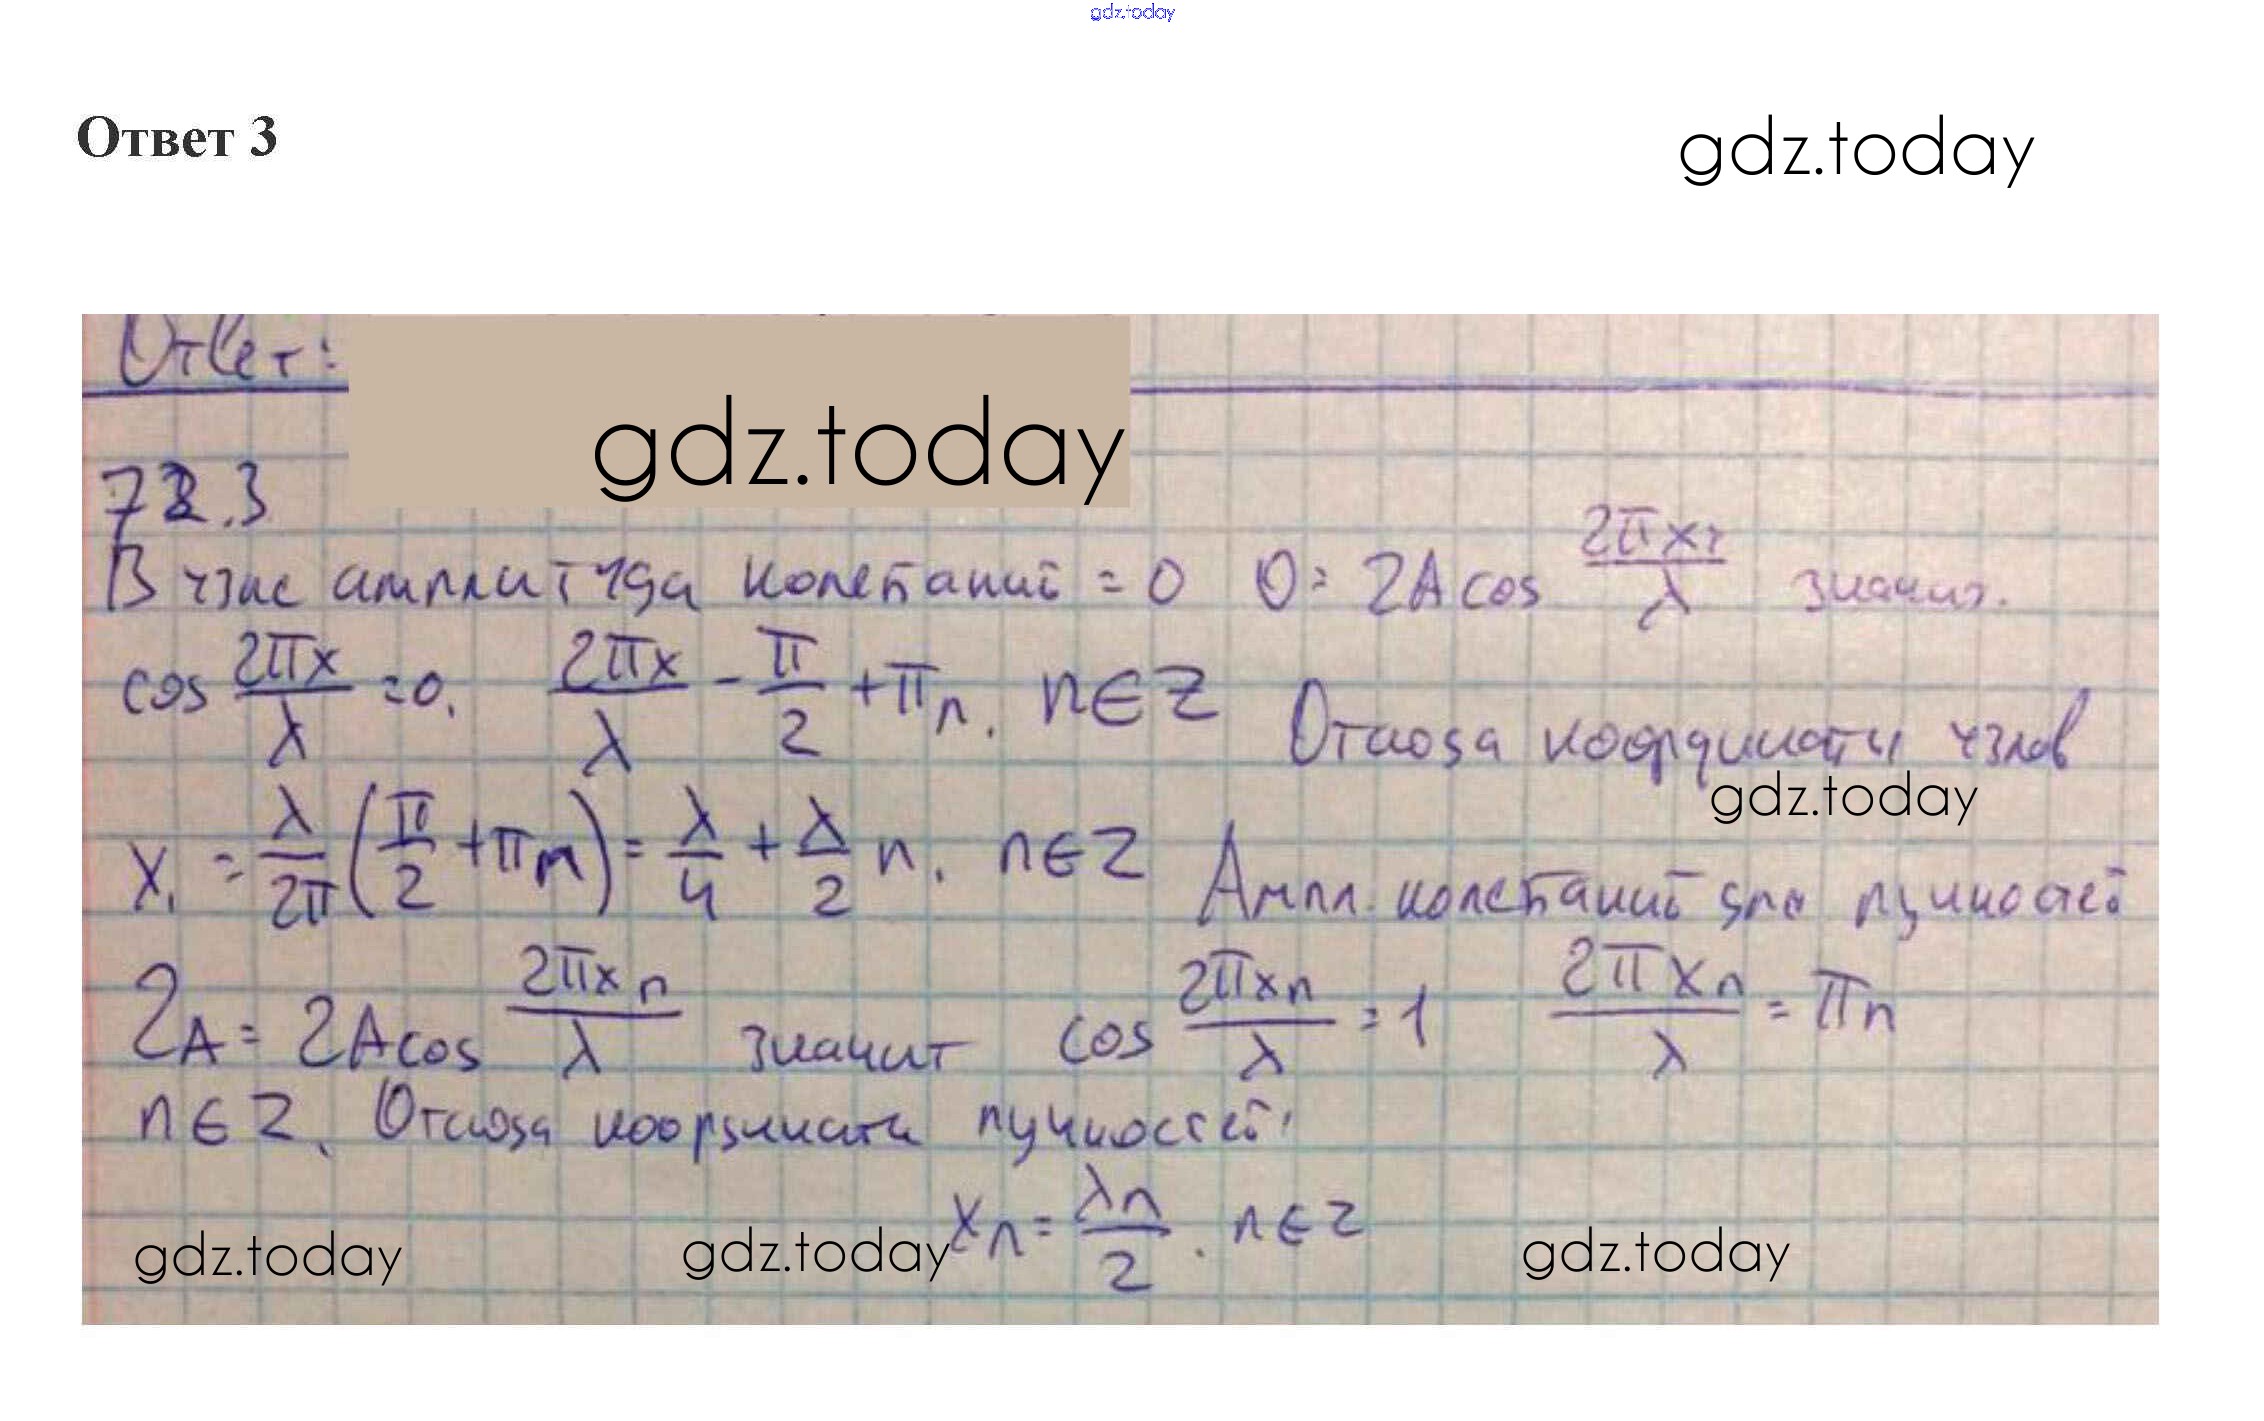 gdz.today
Ответ 3
gdz.today
Ответ:
gdz.today
72.3
В узле амплитуда колебаний = 0 0 = 2A cos 2πx₁/λ значит.
cos 2πx/λ = 0. 2πx/λ - π/2 + πn. n∈Z Отсюда координаты узлов
gdz.today
x₁ = λ/2π (π/2 + πn) = λ/4 + λ/2 n. n∈Z Ампл. колебаний для пучностей
2A = 2A cos 2πxn/λ значит cos 2πxn/λ = 1 2πxn/λ = πn
n∈Z. Отсюда координаты пучностей:
xn = λn/2. n∈Z
gdz.today gdz.today gdz.today